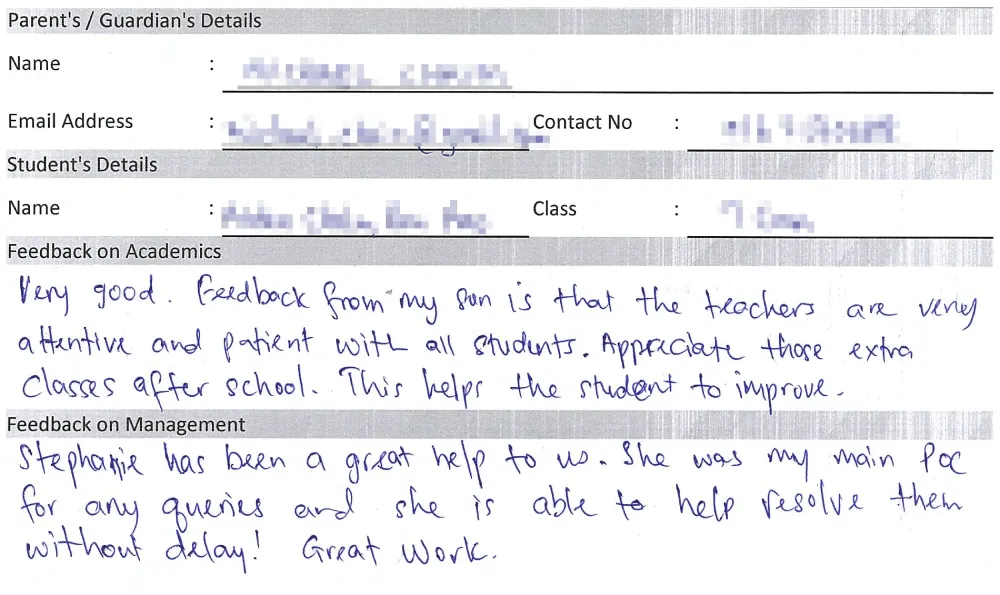 Parent's / Guardian's Details
Name :
Email Address : Contact No :
Student's Details
Name : Class :
Feedback on Academics
Very good. Feedback from my son is that the teachers are very
attentive and patient with all students. Appreciate those extra
classes after school. This helps the student to improve.
Feedback on Management
Stephanie has been a great help to us. She was my main POC
for any queries and she is able to help resolve them
without delay! Great Work.